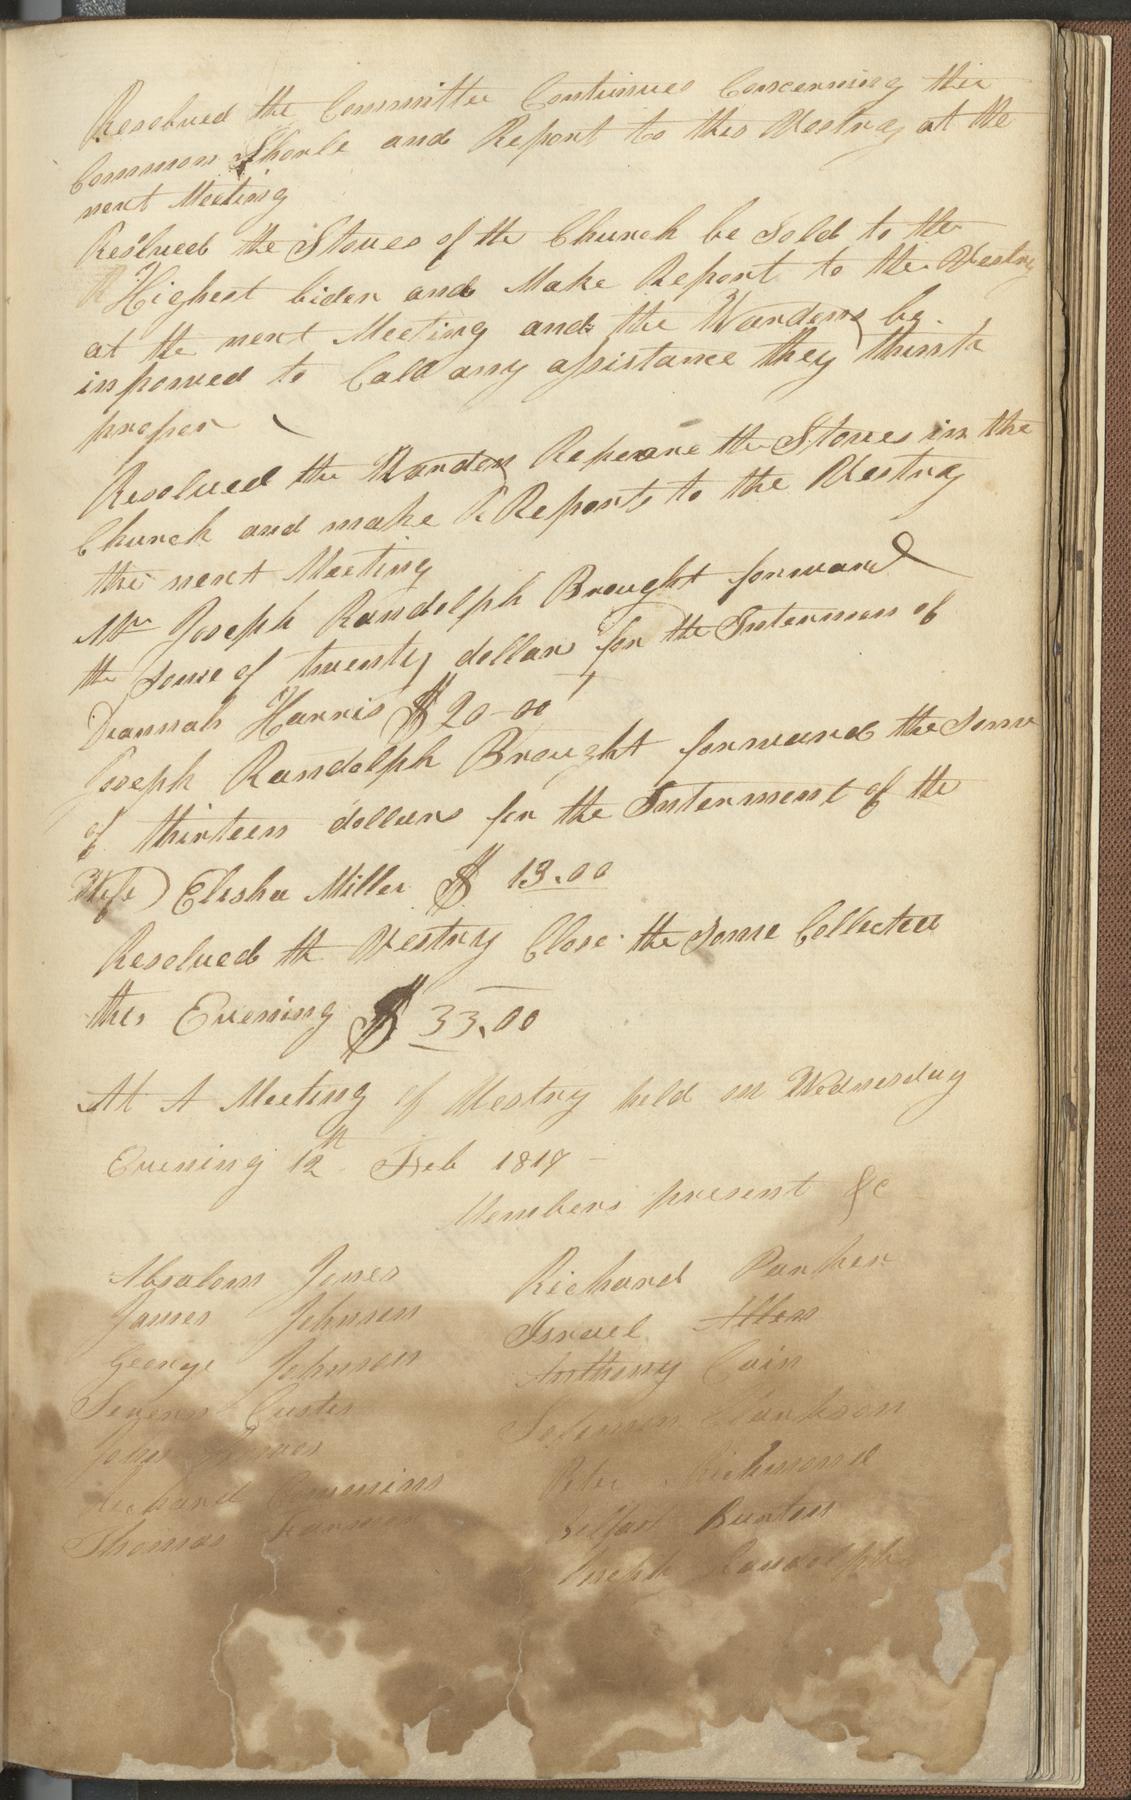 Resolved the Committee Continues Concerning the
Common Shorle and Report to this Vestry at the
next Meeting
Reslued the Stoves of the Church be Sold to the
Highest bider and Make Report to the Vestry
at the next Meeting and the Wardens be
inpowed to Call any assistance they think
proper
Resolued the Warden Repeare the Stoves in the
Church and make R Reports to the Vestry
the next Meeting
Mr Joseph Randolph Brought forward
the some of twenty dollars for the Intermen of
Deannah Harris $ 20-00
Joseph Randolph Brought forward the Some
of thirteen dollars for the Interment of the
Wife Elisha Miller $ 13.00
Resolued th Vestry Close the Some Collected
this Evening $ 33.00
At A Meeting of Vestry held on Wednesday
Evening 12th Feb 1818
Members present &c
Absalom Jones Richard Parker
James Johnson Israel Allen
George Johnson Anthony Cain
Custes Solomon Clarkson
John Peter Richmond
Richard Cummins Belfast Burton
Thomas Joseph Randolph